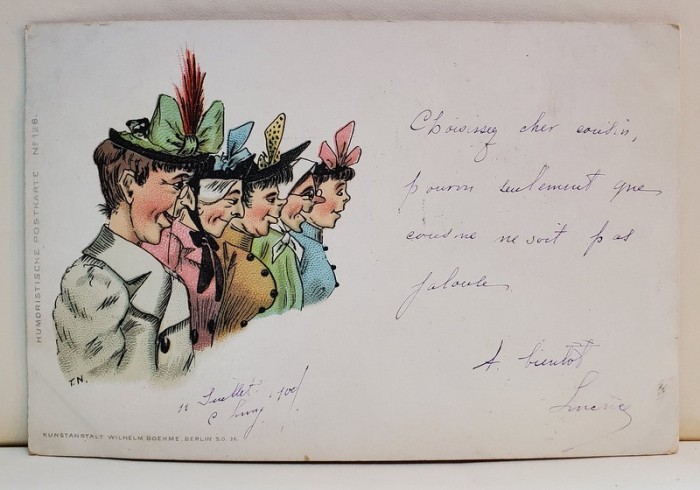 HUMORISTISCHE POSTKARTE Nº 128.
Choisissez cher cousin,
pourvu seulement que
cousine ne soit pas
jalouse
A bientôt
T.N.
12 Juillet
KUNSTANSTALT WILHELM BOEHME, BERLIN S.O. 16.